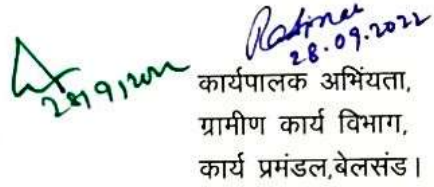 28.09.2022
कार्यपालक अभिंयता,
ग्रामीण कार्य विभाग,
कार्य प्रमंडल,बेलसंड।